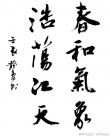 春和氣象
浩蕩江天